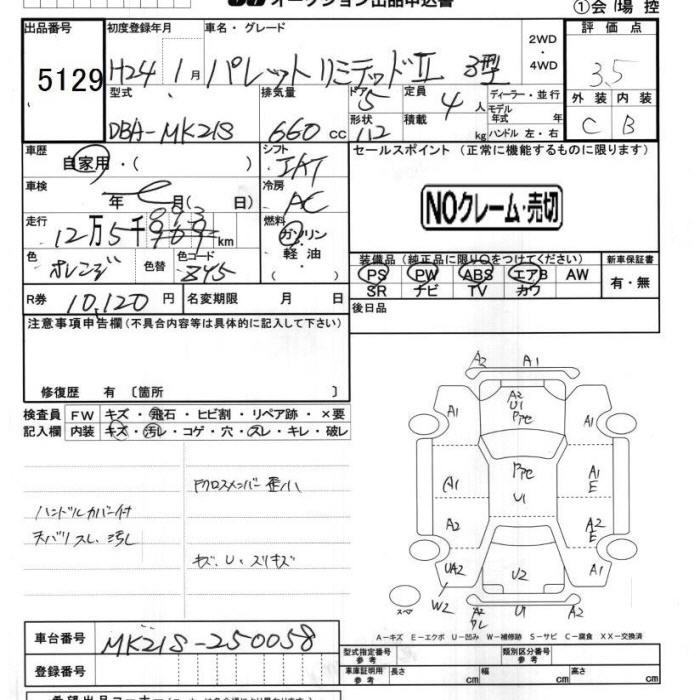 オークション出品申込書
①会場控
出品番号 5129
初度登録年月 H24年1月
車名・グレード パレット リミテッドⅡ 3型
2WD・4WD
評価点 3.5
外装 C 内装 B
型式 DBA-MK21S
排気量 660cc
ドア 5
形状 112
定員 4人
積載 kg
ディーラー・並行
モデル年式 年
ハンドル 左・右
車歴 自家用・( )
シフト IAT
車検 年 月( 日)
冷房 AC
走行 12万5千893km
燃料 ガソリン・軽油・( )
色 オレンジ 色替 色コード
R券 10,120円 名変期限 月 日
セールスポイント (正常に機能するものに限ります)
NOクレーム・売切
装備品(純正品に限り○をつけてください)
PS PW ABS エアB AW
SR ナビ TV カワ
新車保証書 有・無
後日品
注意事項申告欄(不具合内容等は具体的に記入して下さい)
修復歴 有 〔箇所 〕
検査員記入欄
FW キズ・飛石・ヒビ割・リペア跡・×要
内装 キズ・汚レ・コゲ・穴・スレ・キレ・破レ
ハンドルカバー付
天バリスレ、汚レ
Fクロスメンバー歪小
キズ、U・スリキズ
A2 A1
A2 U1 Ppe
A1 A1
Ppe U1
A1 A1 E
A2 A2 E
UA2 U2 A1
W2
スペア
A2 ワレ U1 A2
A－キズ E－エクボ U－凹み W－補修跡 S－サビ C－腐食 XX－交換済
車台番号 MK21S-250058
登録番号
型式指定番号 参考
類別区分番号 参考
車庫証明用 参考 長さ cm 幅 cm 高さ cm
希望出品コーナー